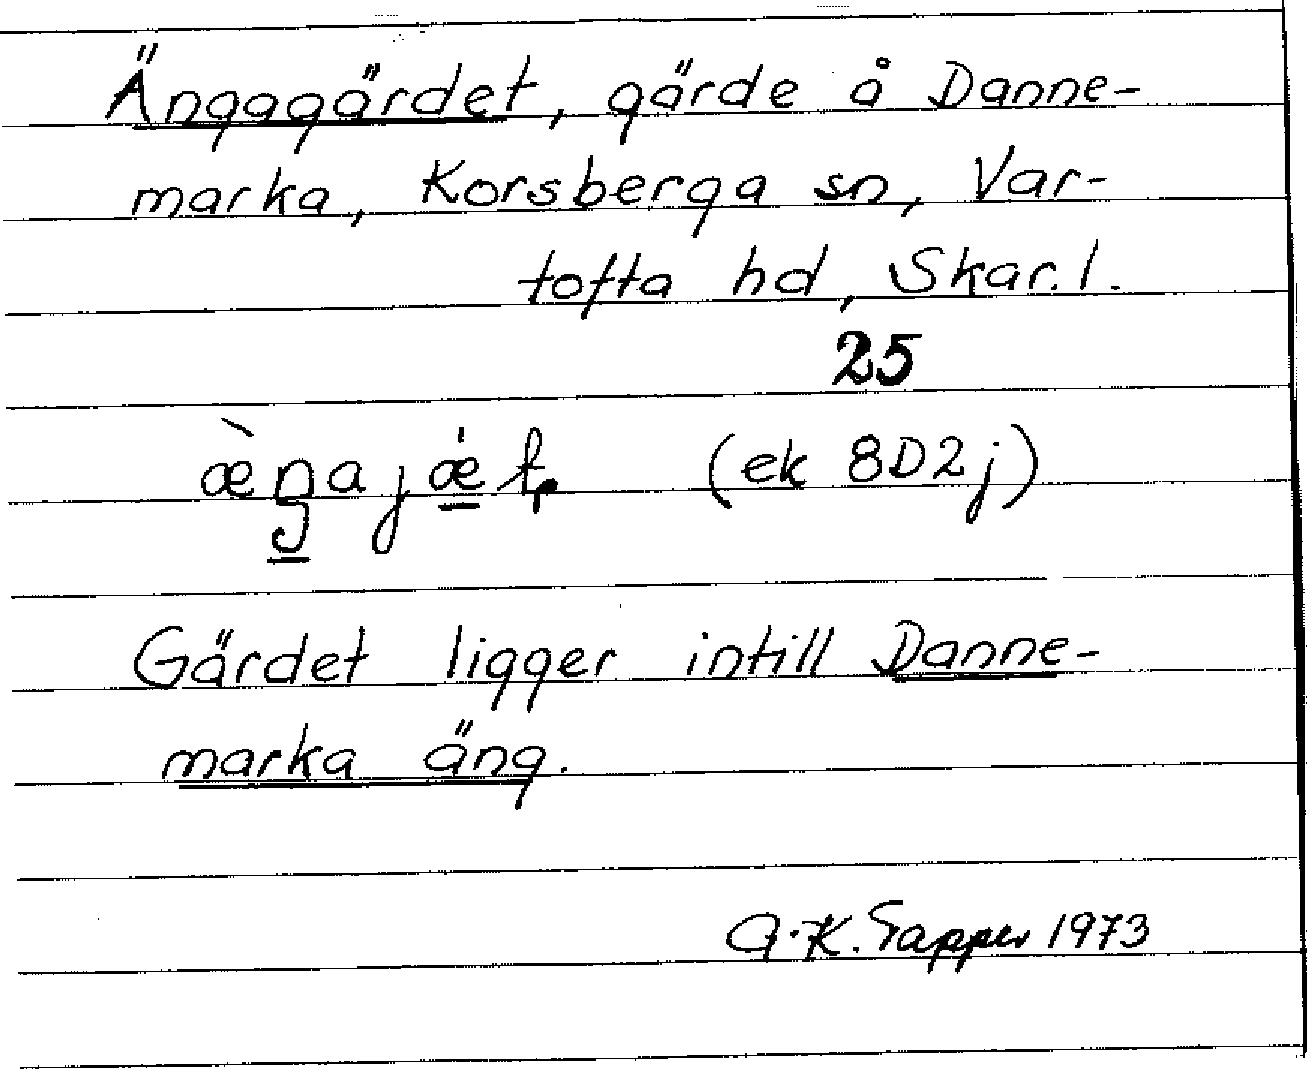 Ängagärdet, gärde å Danne-
marka, Korsberga sn, Var-
tofta hd, Skar. l.
25
æ̀ŋajǽt (ek 8D2j)
Gärdet ligger intill Danne-
marka äng.
A.-K. Tapper 1973